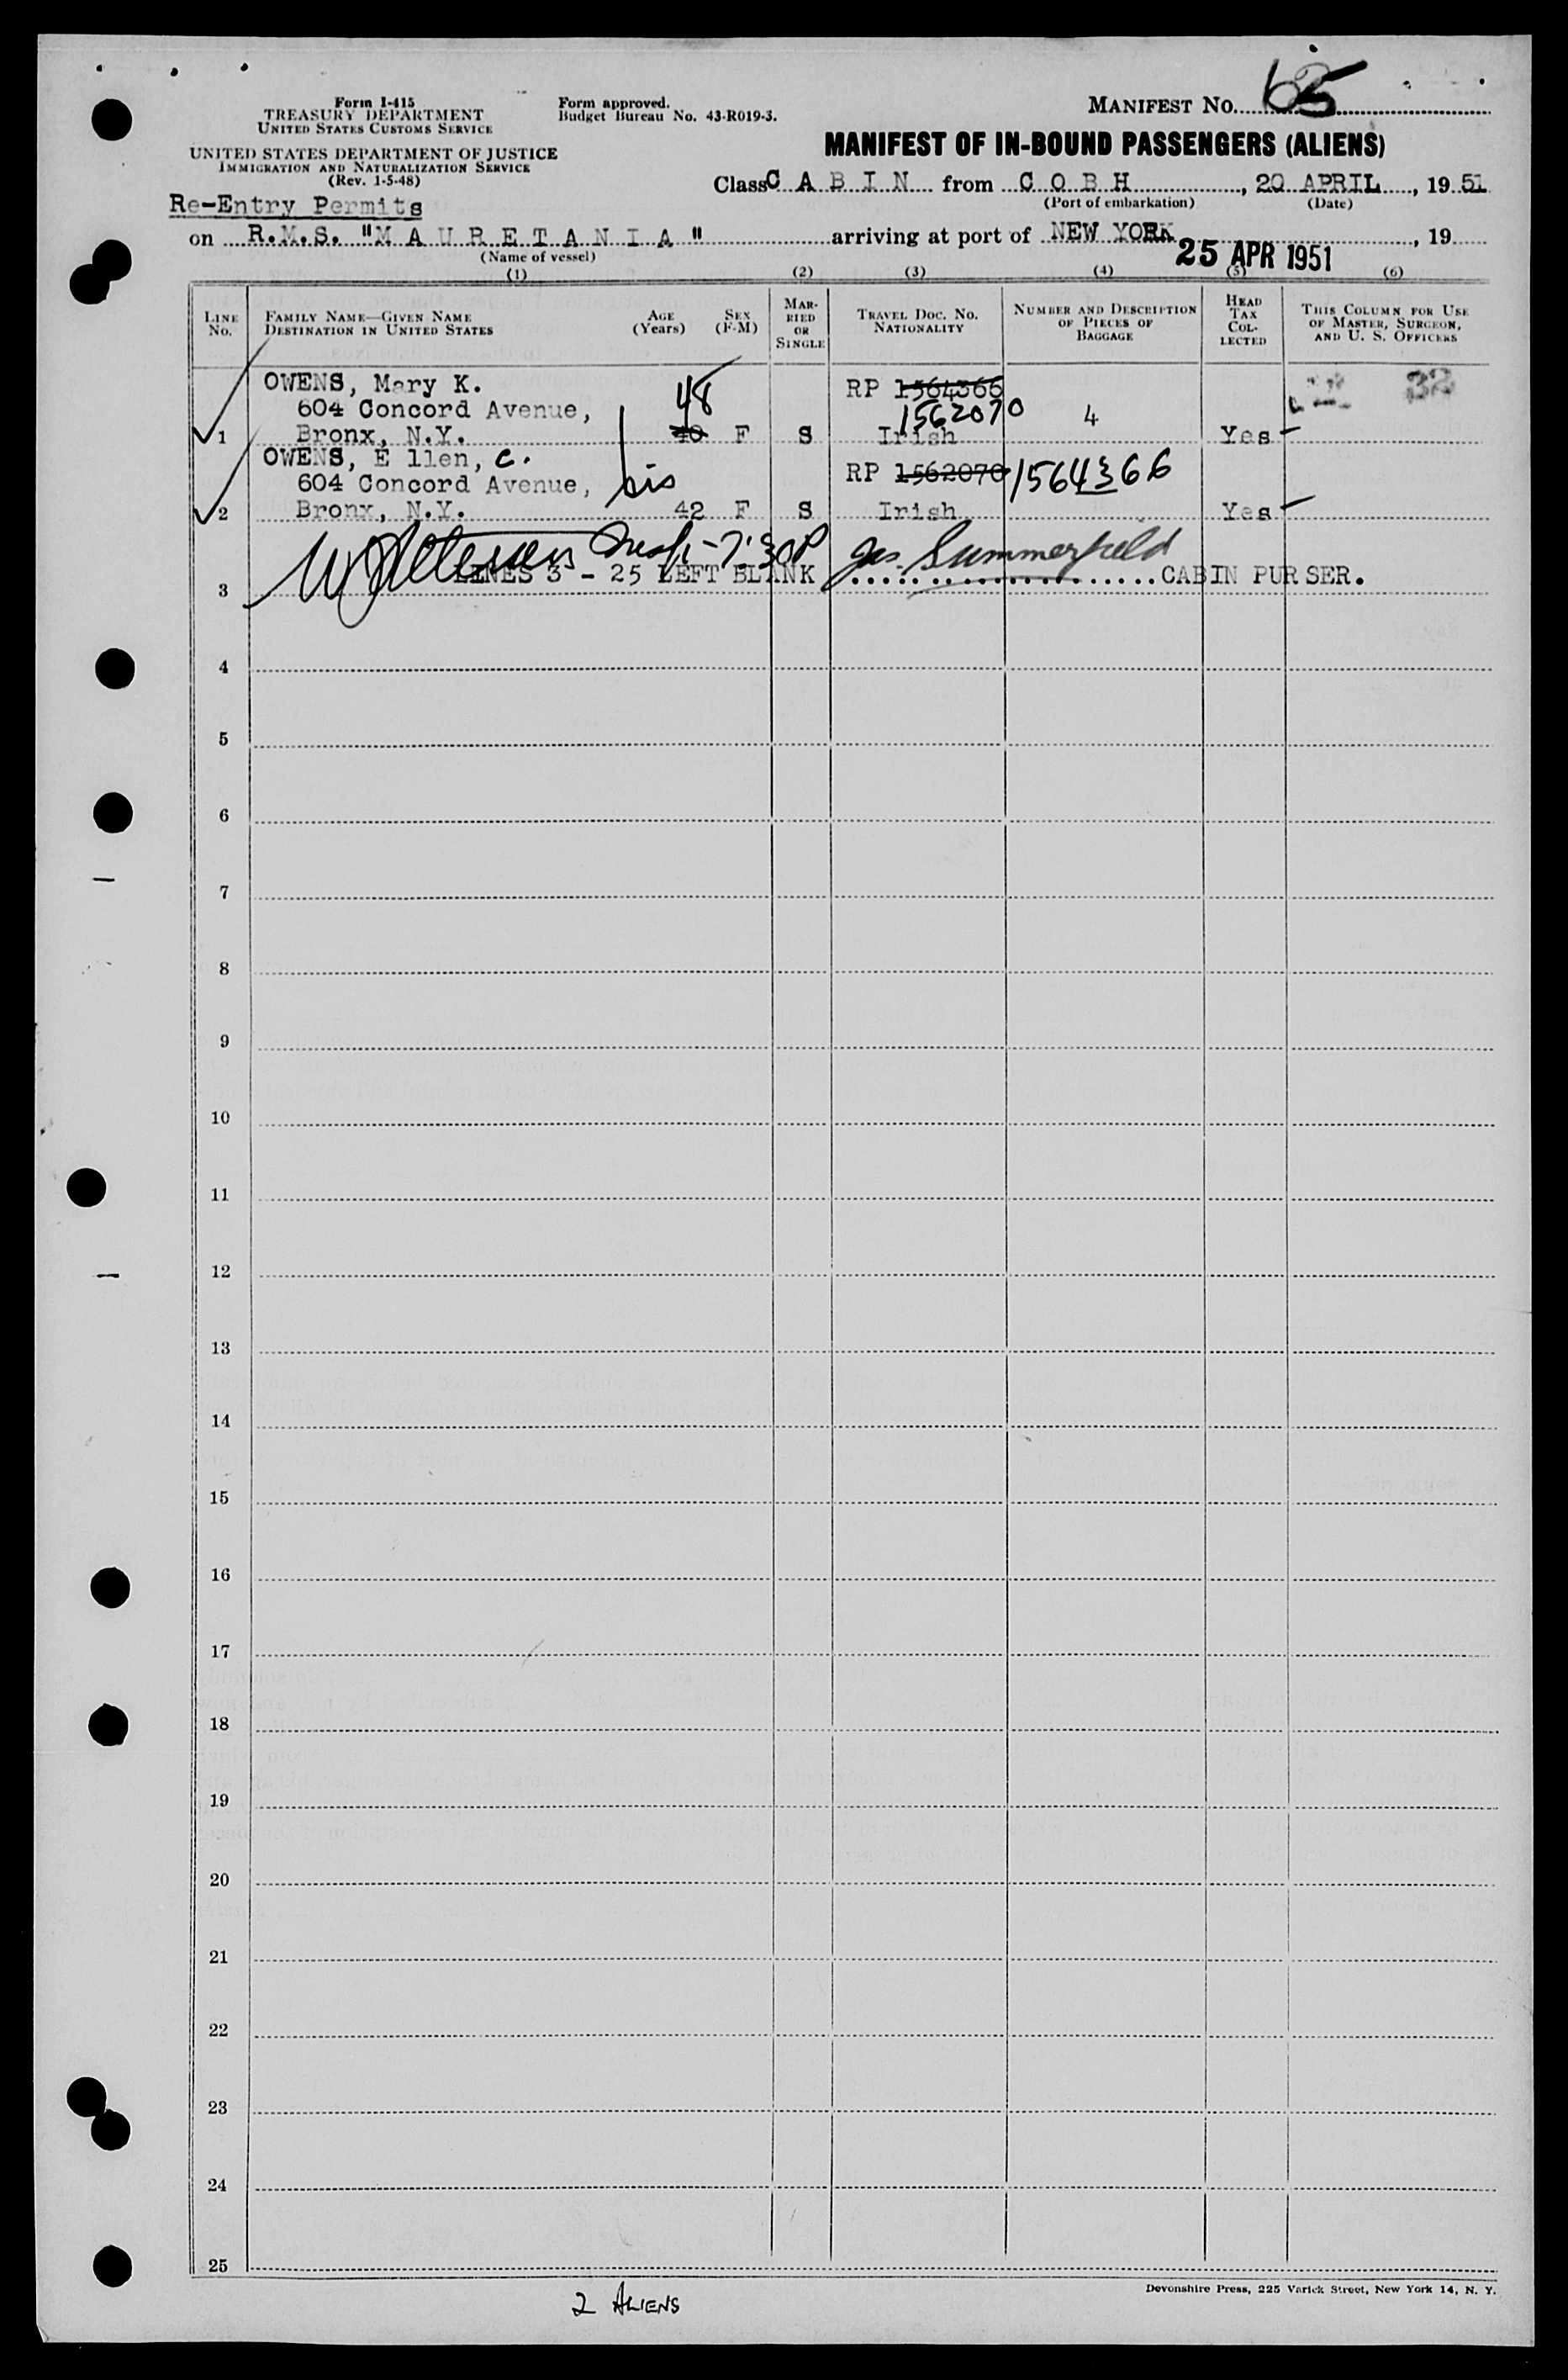 Form I-415
TREASURY DEPARTMENT
UNITED STATES CUSTOMS SERVICE
UNITED STATES DEPARTMENT OF JUSTICE
IMMIGRATION AND NATURALIZATION SERVICE
(Rev. 1-5-48)
Form approved.
Budget Bureau No. 43-R019-3.
MANIFEST NO.
MANIFEST OF IN-BOUND PASSENGERS (ALIENS)
Class C A B I N from C O B H, 20 APRIL, 19 51
(Port of embarkation) (Date)
Re-Entry Permits
on R.M.S. "M A U R E T A N I A" arriving at port of NEW YORK, 19
(Name of vessel)
25 APR 1951
(1) (2) (3) (4) (5) (6)
LINE No. FAMILY NAME—GIVEN NAME DESTINATION IN UNITED STATES AGE (Years) SEX (F-M) MARRIED OR SINGLE TRAVEL DOC. NO. NATIONALITY NUMBER AND DESCRIPTION OF PIECES OF BAGGAGE HEAD TAX COLLECTED THIS COLUMN FOR USE OF MASTER, SURGEON, AND U. S. OFFICERS
OWENS, Mary K. 48 RP 1564366 32
604 Concord Avenue, 1562070 4
1 Bronx, N.Y. 40 F S Irish Yes
OWENS, E llen, C.
604 Concord Avenue, sis RP 1562070 1564366
2 Bronx, N.Y. 42 F S Irish Yes
Jas. Summerfield
3 LINES 3 - 25 LEFT BLANK CABIN PURSER.
4
5
6
7
8
9
10
11
12
13
14
15
16
17
18
19
20
21
22
23
24
25
Devonshire Press, 225 Varick Street, New York 14, N. Y.
2 ALIENS